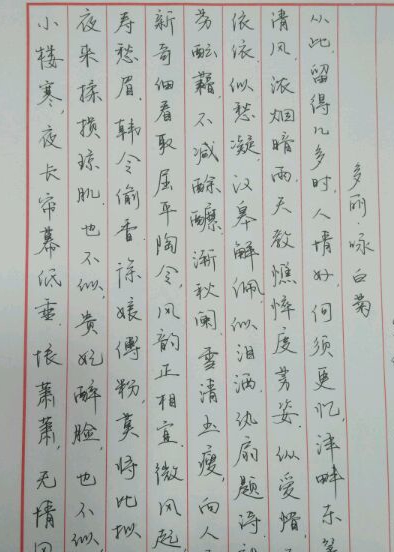 多丽·咏白菊
小楼寒,夜长帘幕低垂.恨萧萧,无情
夜来揉损琼肌.也不似,贵妃醉脸,也不似,
寿愁眉.韩令偷香.徐娘傅粉,莫将比拟
新奇.细看取屈平陶令,风韵正相宜.微风起,
芬酝藉,不减酴醾.渐秋阑,雪清玉瘦,向人
依依.似愁凝,汉皋解佩,似泪洒,纨扇题诗,
清风,浓烟暗雨,天教憔悴度芳姿.纵爱惜,
从此,留得几多时.人情好,何须更忆,泽畔东